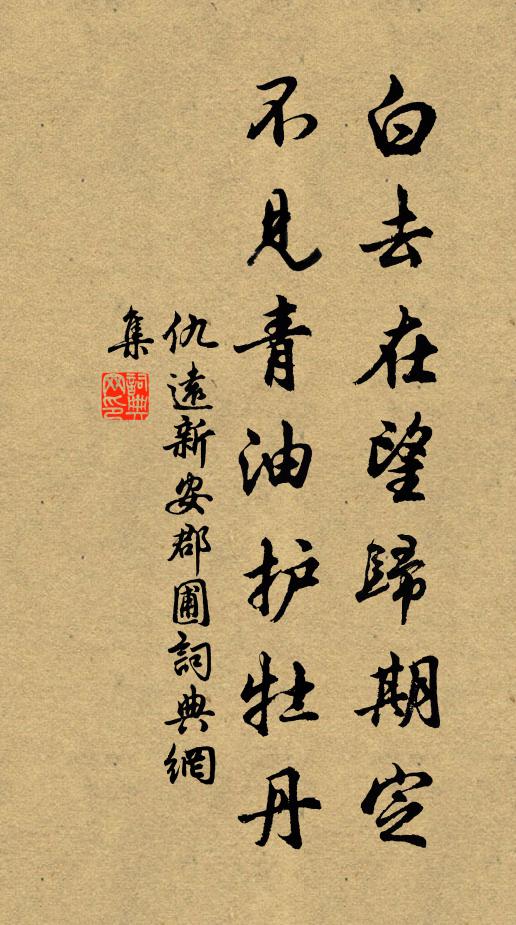 白去在望歸期定
不見青油护牡丹
仇遠新安郡圃詞典網
集
詞典
网印